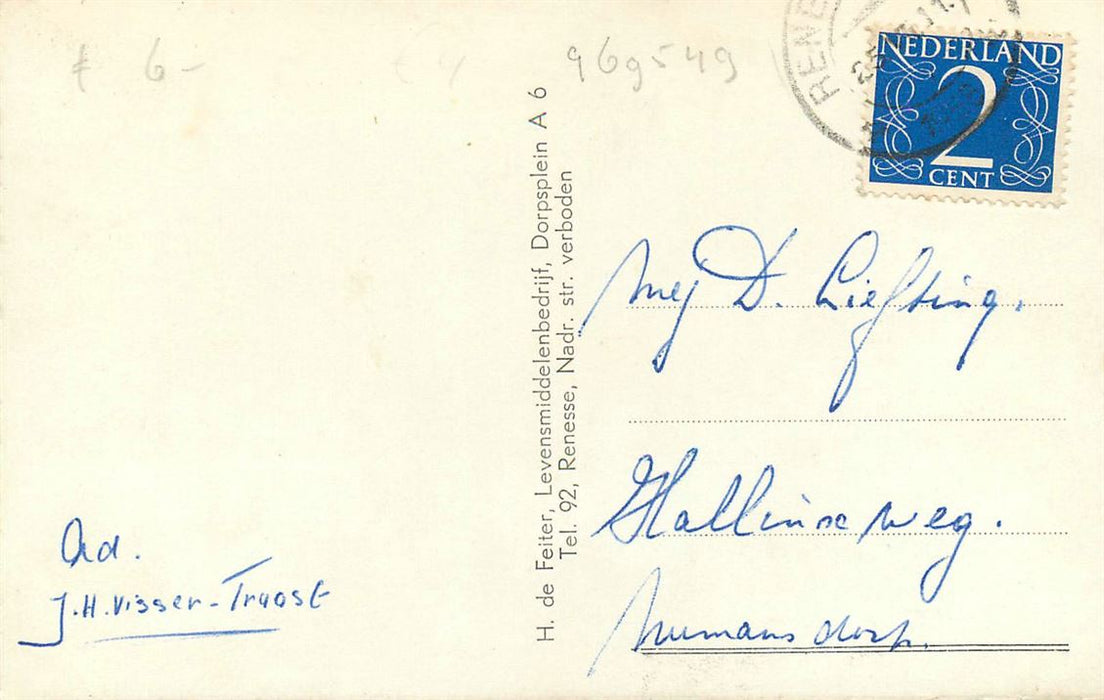 f 6-
969549
RENE
NEDERLAND
2
CENT
H. de Feiter, Levensmiddelenbedrijf, Dorpsplein A 6
Tel. 92, Renesse, Nadr. str. verboden
Mej D. Liefting.
Hallinxe weg.
Numansdorp.
Ad.
J.H. Visser-Troost